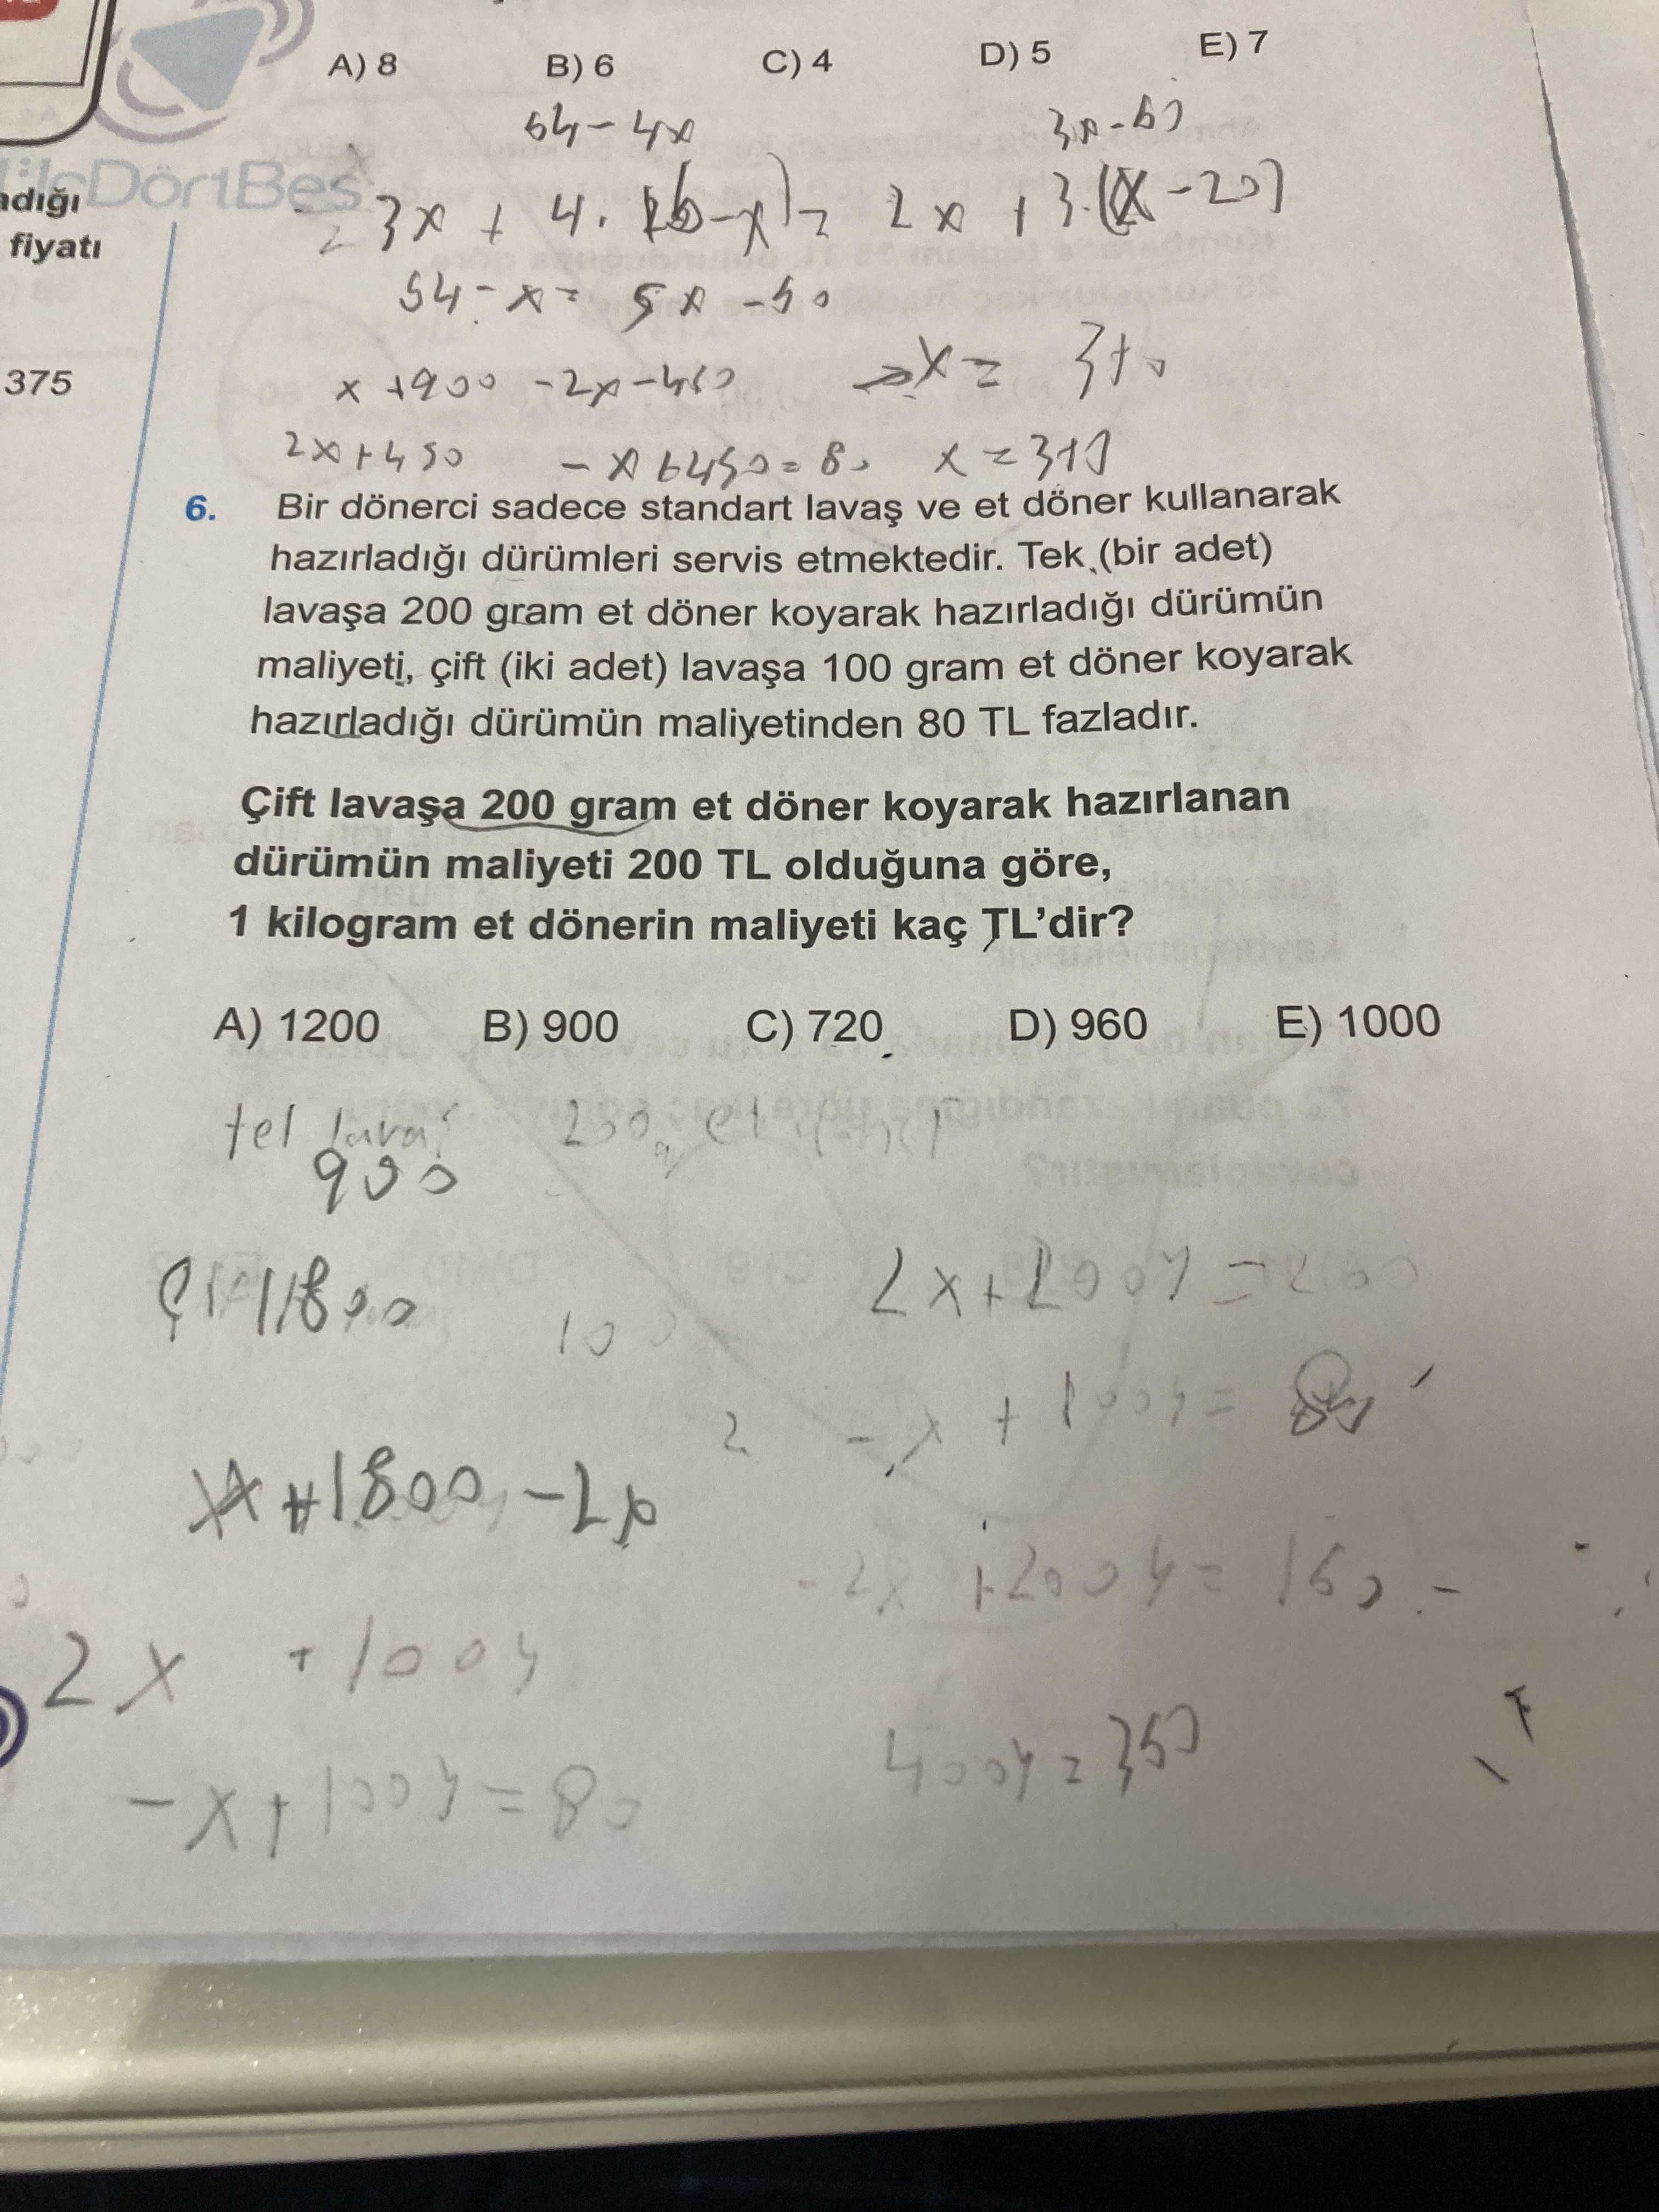 A) 8 B) 6 C) 4 D) 5 E) 7
54 - 4x 3x - 60
ÜçDörtBeş
adığı
fiyatı
375
3x + 4. - x) = 2x + 3.(x - 20)
54 - x = 5x - 50
x + 900 - 2x - 450 x =
2x + 450 - x + 450 = 80 x = 370
6. Bir dönerci sadece standart lavaş ve et döner kullanarak
hazırladığı dürümleri servis etmektedir. Tek (bir adet)
lavaşa 200 gram et döner koyarak hazırladığı dürümün
maliyeti, çift (iki adet) lavaşa 100 gram et döner koyarak
hazırladığı dürümün maliyetinden 80 TL fazladır.
Çift lavaşa 200 gram et döner koyarak hazırlanan
dürümün maliyeti 200 TL olduğuna göre,
1 kilogram et dönerin maliyeti kaç TL’dir?
A) 1200 B) 900 C) 720 D) 960 E) 1000
tek lavaş 200 et
900
1800 100
2x + 200y = 200
- x + 100y = 80
x + 1800 - 2x
- 2x + 200y = 160
2x + 100y
400y = 360
- x + 100y = 80